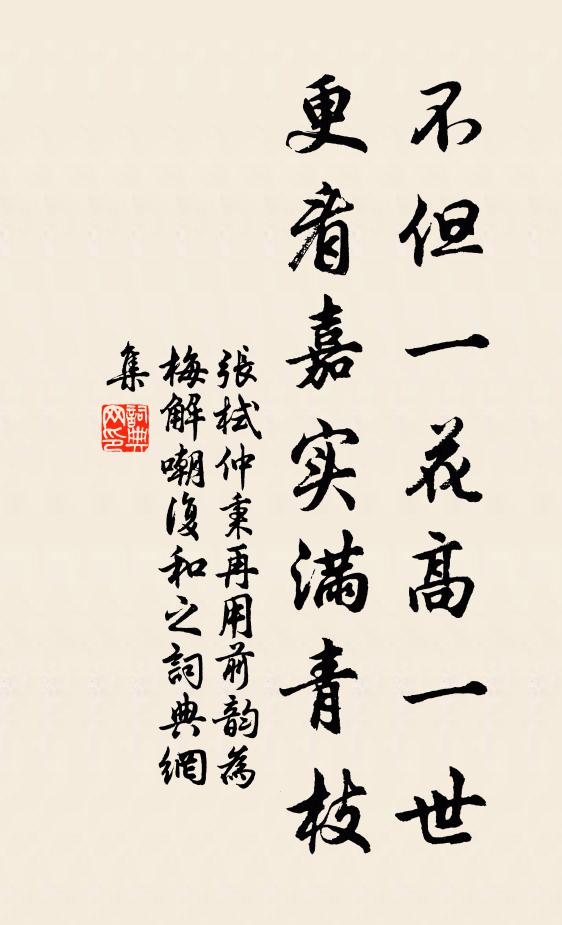 不但一花高一世
更看嘉实满青枝
張栻仲秉再用前韵為
梅解嘲復和之詞典網
集
詞典网印